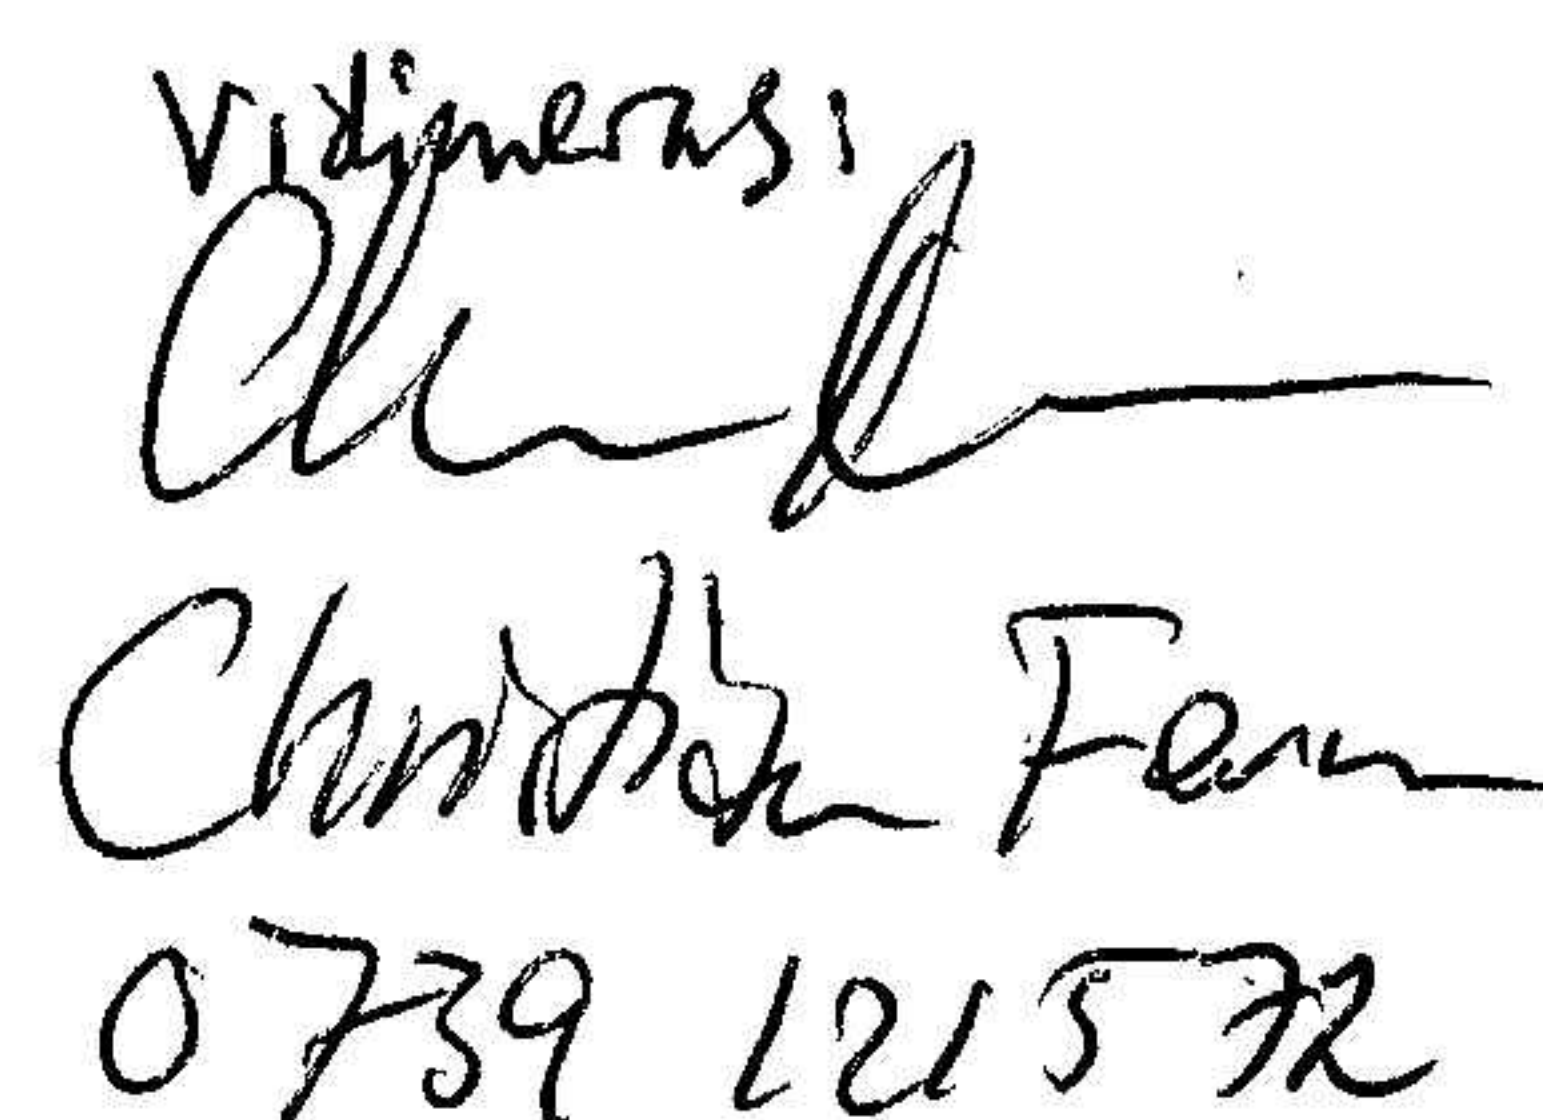 Vidimeras:
Christian Ferm
0739 121572